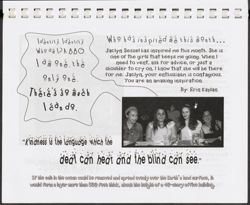 Who has inspired me this month...
Jaclyn Dossel has inspired me this month. She is
one of the girls that keeps me going. When I
need to vent, ask for advice, or just a
shoulder to cry on, I know that she will be there
for me. Jaclyn, your enthusiasm is contagious.
You are an amazing inspiration.
By: Erin Kaplan
I am one, the
only one.
There's so much
I can do.
"Kindness is the language which the
deaf can hear and the blind can see."
If the salt in the ocean could be removed and spread evenly over the Earth's land surface, it
would form a layer more than 500 feet thick, about the height of a 40-story office building.